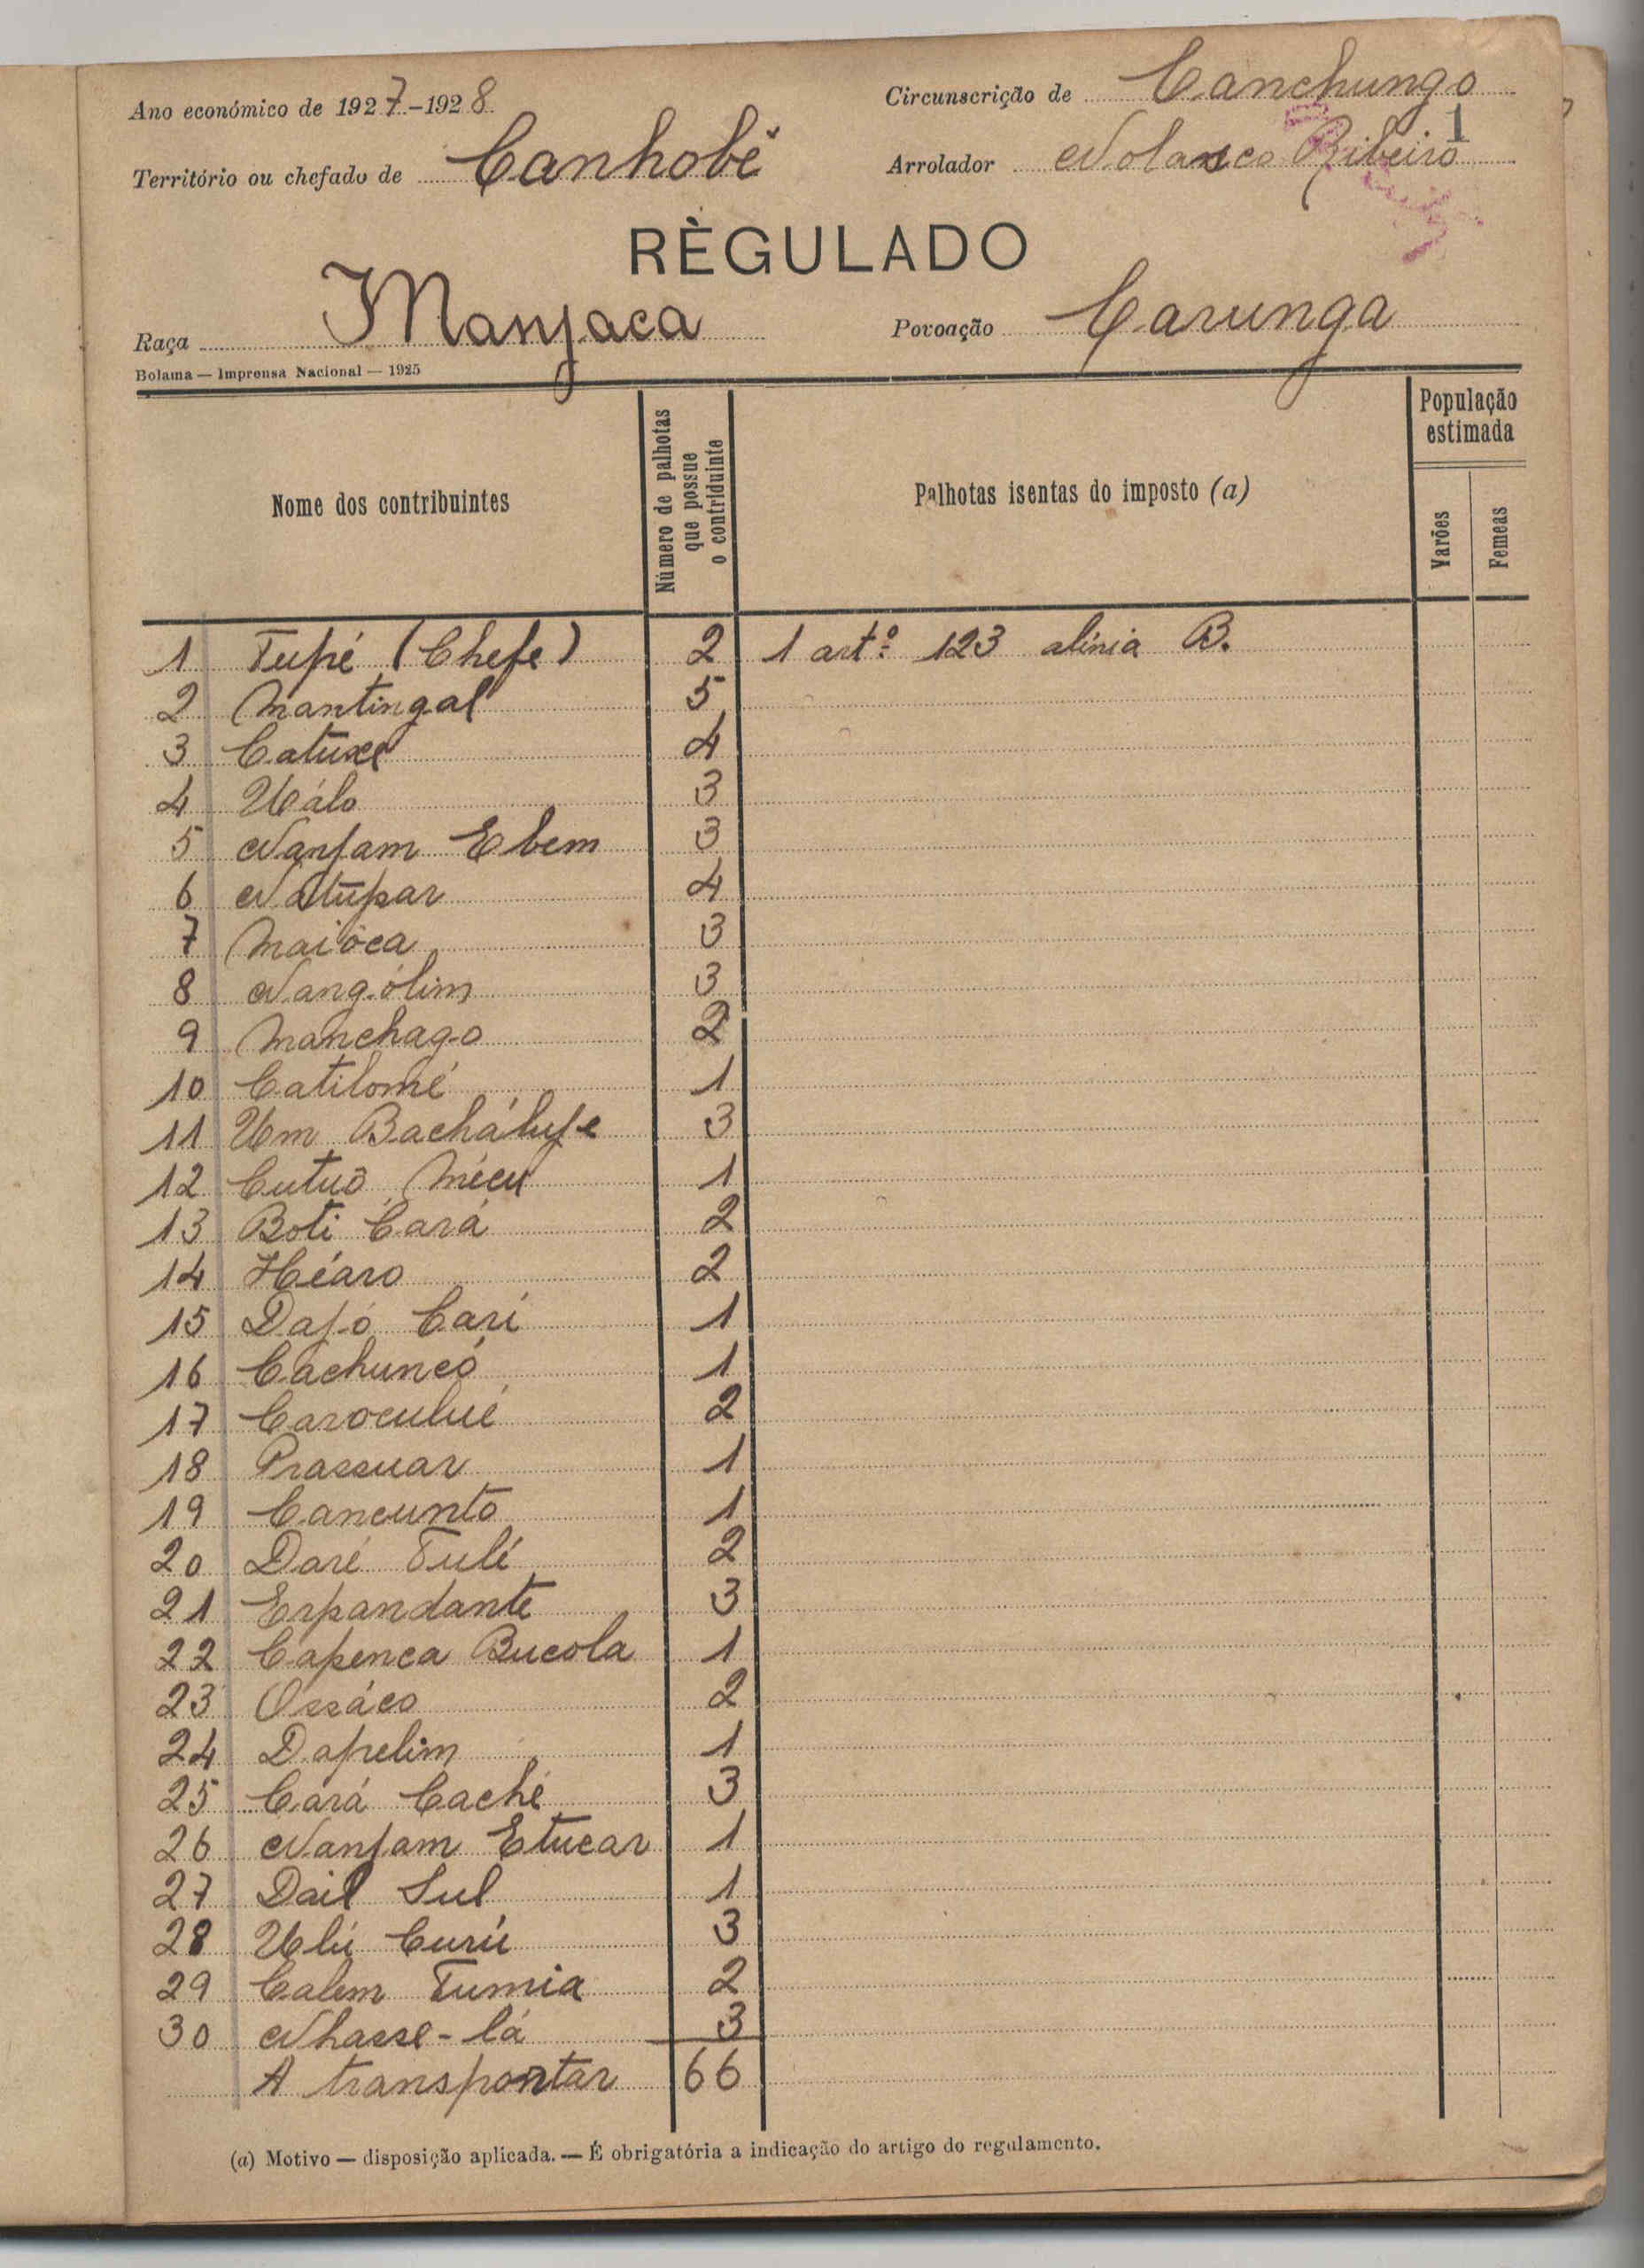 Ano económico de 1927-1928
Circunscrição de Canchungo
1
Território ou chefado de Canhobé
Arrolador Nolasco Ribeiro
RÈGULADO
Raça Manjaca
Povoação Carunga
Bolama — Imprensa Nacional — 1925
Nome dos contribuintes
Número de palhotas
que possue
o contriduinte
Palhotas isentas do imposto (a)
População
estimada
Varões
Femeas
1 Tupé (Chefe) 2 1 artº 123 alinia B.
2 Mantingal 5
3 Catuxe 4
4 Uálo 3
5 Nanjam Ebem 3
6 Natupar 4
7 Maióca 3
8 Nangólim 3
9 Manchago 2
10 Catilomé 1
11 Um Bachálufe 3
12 Cutuò Mécu 1
13 Boti Cará 2
14 Héaro 2
15 Dajó Cari 1
16 Cachuncó 1
17 Caroculué 2
18 Prassuar 1
19 Cancunto 1
20 Daré Tulé 2
21 Erpandante 3
22 Capenca Bucola 1
23 Ossáco 2
24 Dapelim 1
25 Cará Caché 3
26 Nanjam Etucar 1
27 Dail Sul 1
28 Ulú Curú 3
29 Calem Tumia 2
30 Nhasse-lá 3
A transportar 66
(a) Motivo — disposição aplicada. — É obrigatória a indicação do artigo do regulamento.